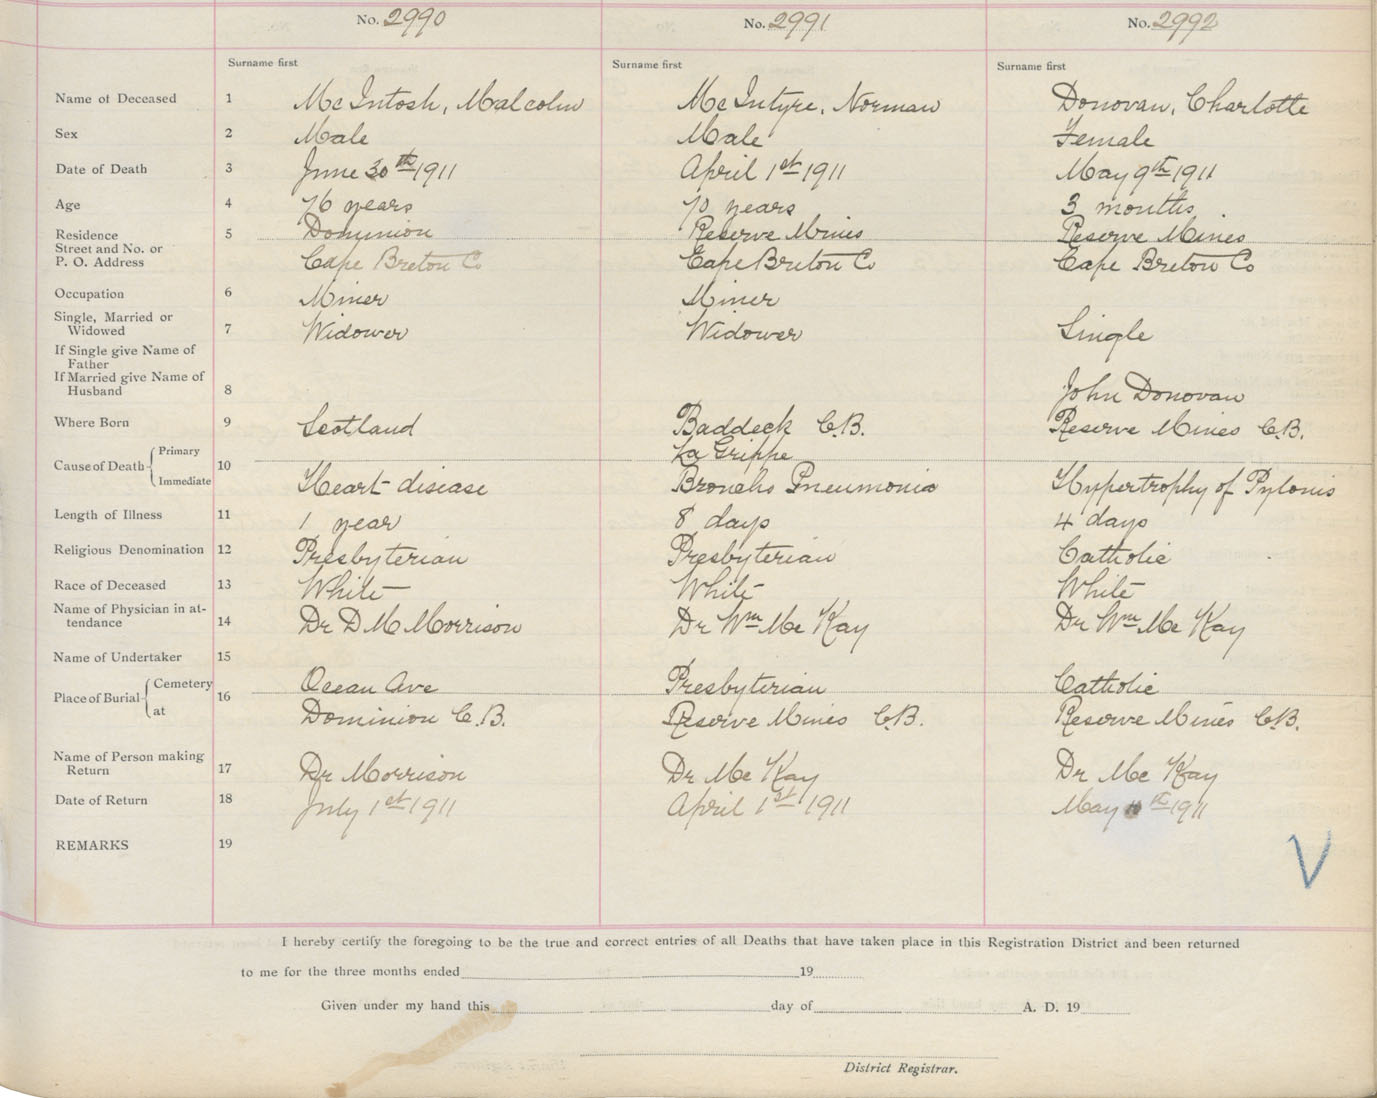 No. 2990 No. 2991 No. 2992
Surname first Surname first Surname first
Name of Deceased 1 McIntosh, Malcolm McIntyre, Norman Donovan, Charlotte
Sex 2 Male Male Female
Date of Death 3 June 30th 1911 April 1st 1911 May 9th 1911
Age 4 76 years 70 years 3 months
Residence 5 Dominion Reserve Mines Reserve Mines
Street and No. or
P. O. Address Cape Breton Co Cape Breton Co Cape Breton Co
Occupation 6 Miner Miner
Single, Married or
Widowed 7 Widower Widower Single
If Single give Name of
Father
If Married give Name of
Husband 8 John Donovan
Where Born 9 Scotland Baddeck C.B. Reserve Mines C.B.
Cause of Death Primary 10 La Grippe
Immediate Heart disease Broncho Pneumonia Hypertrophy of Pylonis
Length of Illness 11 1 year 8 days 4 days
Religious Denomination 12 Presbyterian Presbyterian Catholic
Race of Deceased 13 White White White
Name of Physician in at-
tendance 14 Dr D M Morrison Dr Wm Mc Kay Dr Wm Mc Kay
Name of Undertaker 15
Place of Burial Cemetery 16 Ocean Ave Presbyterian Catholic
at Dominion C.B. Reserve Mines C.B. Reserve Mines C.B.
Name of Person making
Return 17 Dr Morrison Dr Mc Kay Dr Mc Kay
Date of Return 18 July 1st 1911 April 1st 1911 May th 1911
REMARKS 19
V
I hereby certify the foregoing to be the true and correct entries of all Deaths that have taken place in this Registration District and been returned
to me for the three months ended 19
Given under my hand this day of A. D. 19
District Registrar.